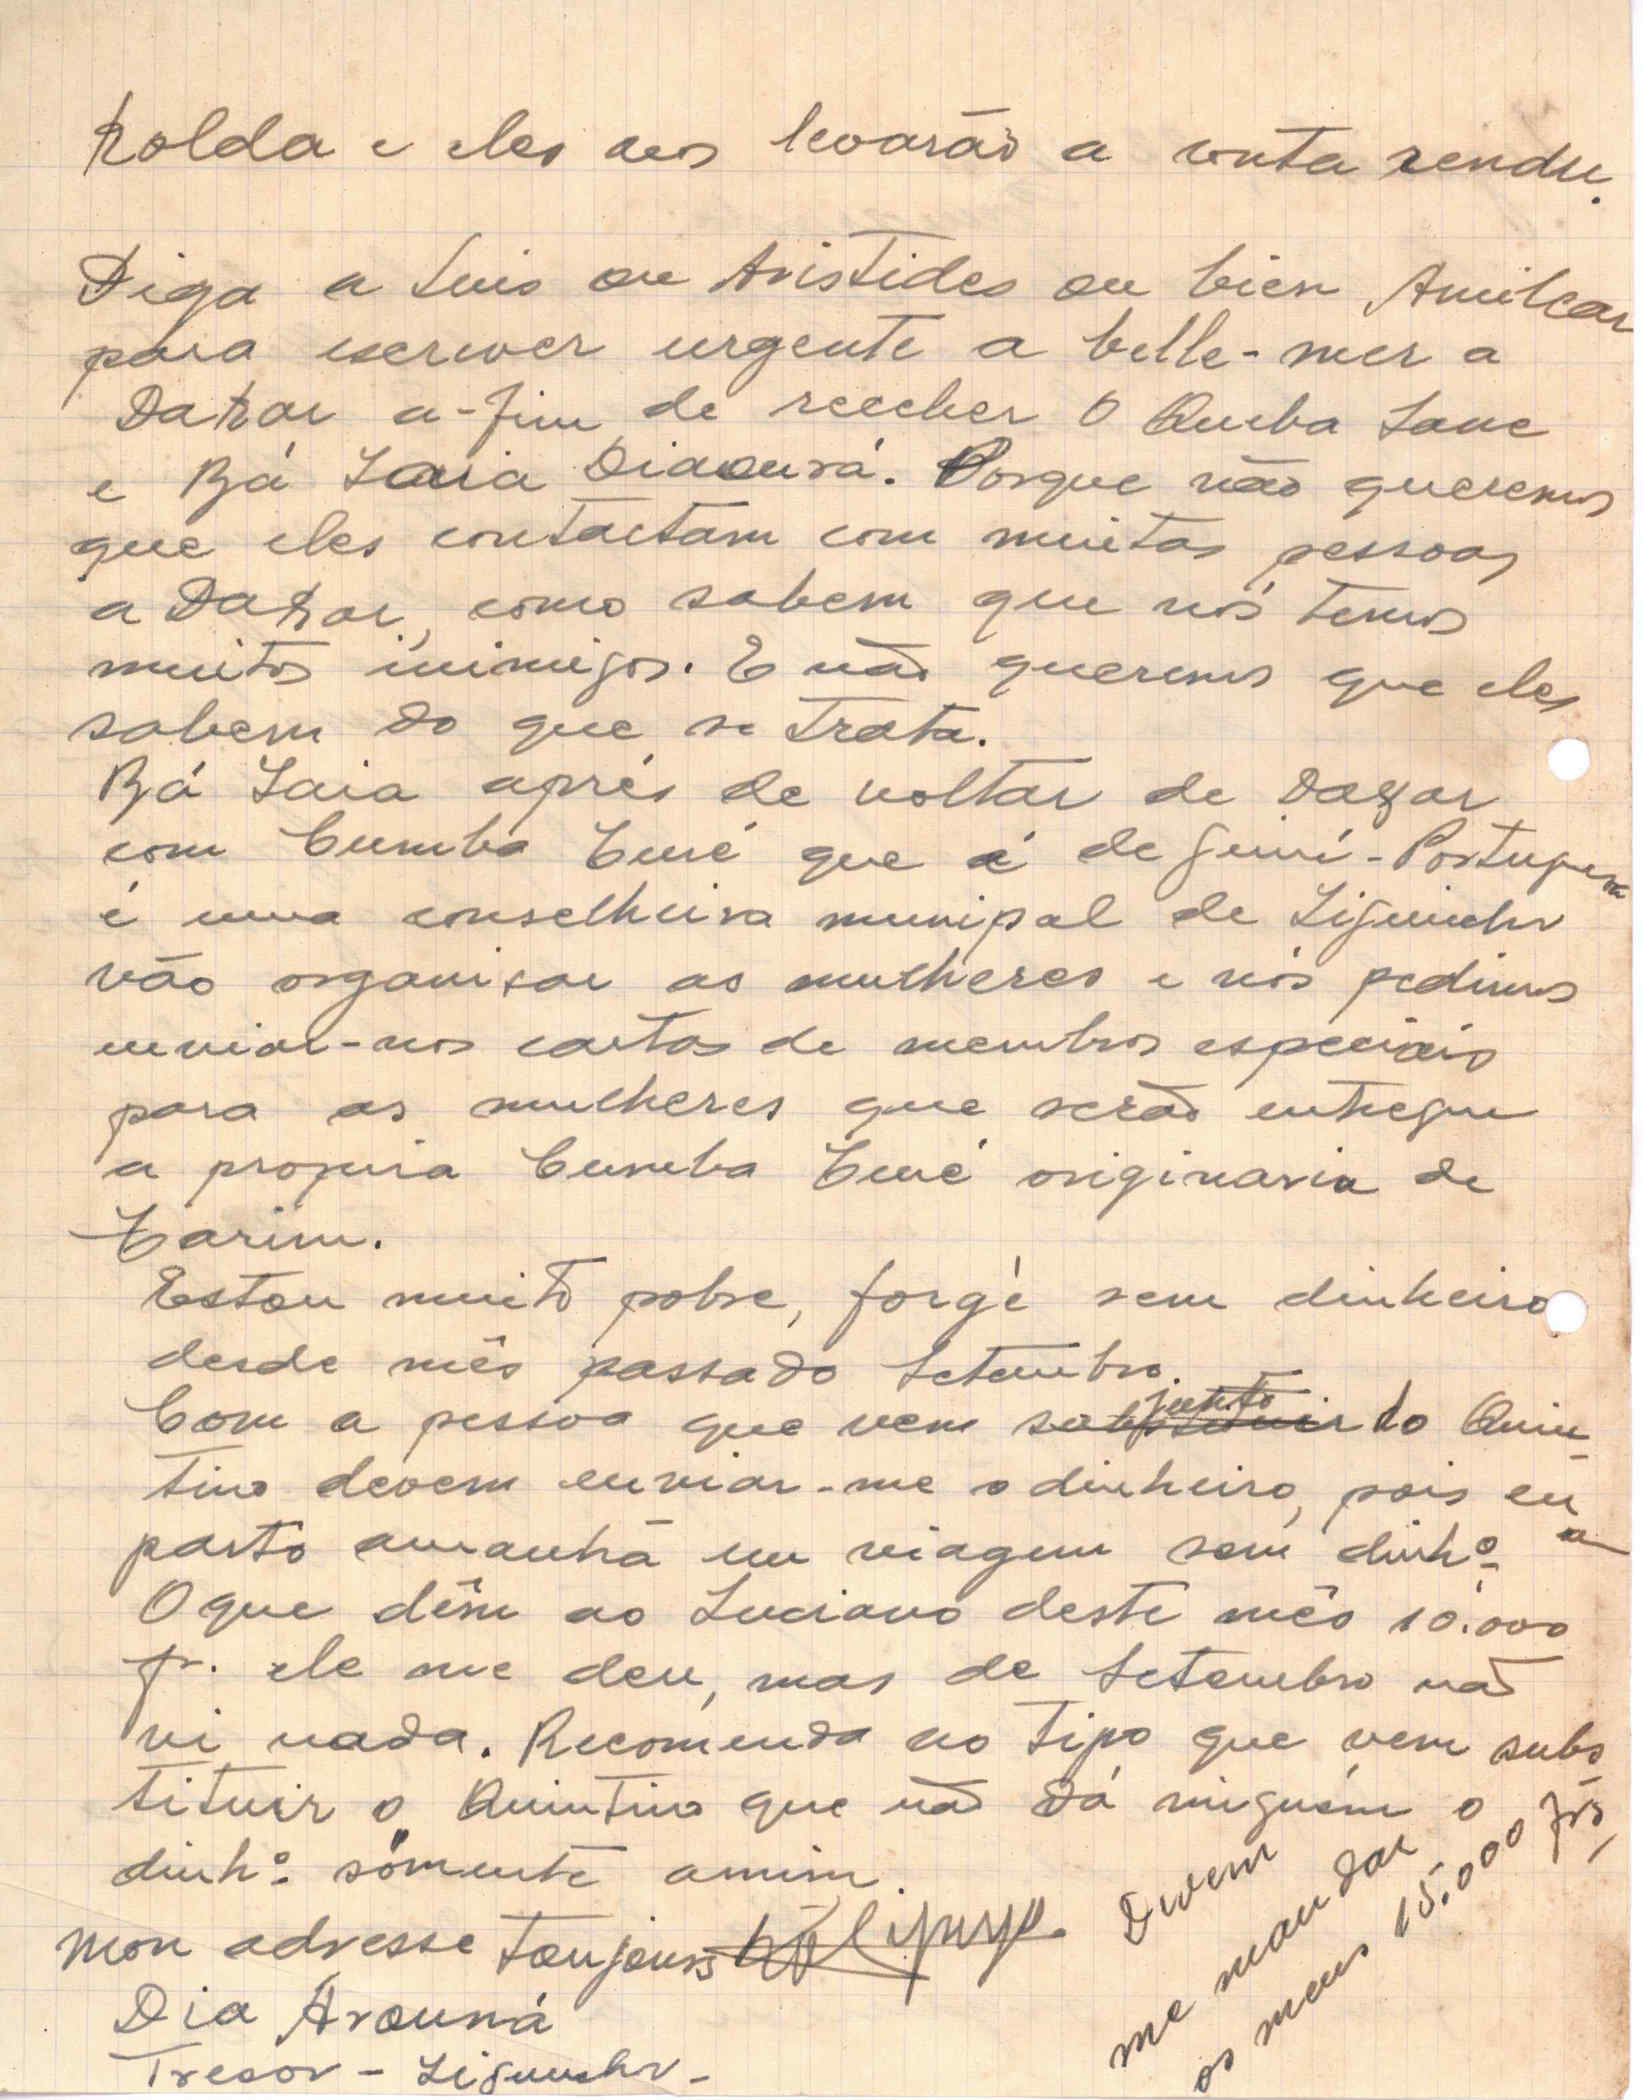 Kolda e eles nos levarão a conta rendu.
Diga a Luis ou Aristides ou bien Amilcar
para escrever urgente a belle-mer a
Dakar a-fim de receber o Queba Sane
e Bá Zaia Diaourá. Porque não queremos
que eles contactam com muitas pessoas
a Dakar, como sabem que nós temos
muitos inimigos. E não queremos que eles
sabem do que se trata.
Bá Zaia aprés de voltar de Dakar
com Cumba Turé que é de Guiné-Portuguesa
é uma conselheira munipal de Ziguinchr
vão organisar as mulheres e nós pedimos
enviar-nos cartas de membros especiais
para as mulheres que serão entregue
a propria Cumba Turé originaria de
Farim.
Estou muito pobre, forgé sem dinheiro
desde mês passado Setembro.
Com a pessoa que vem junto do Quin-
tino devem enviar-me o dinheiro, pois eu
parto amanhã em viagem sem dinhº
O que dêm ao Luciano deste mês 10.000
fr. ele me deu, mas de Setembro não
vi nada. Recomenda ao tipo que vem subs
tituir o Quintino que não dá ninguém o
dinhº sómente amim.
Devem
me mandar
os meus 15.000 frs,
Mon adresse toujours
Dia Arouná
Tresor - Ziguinchr -